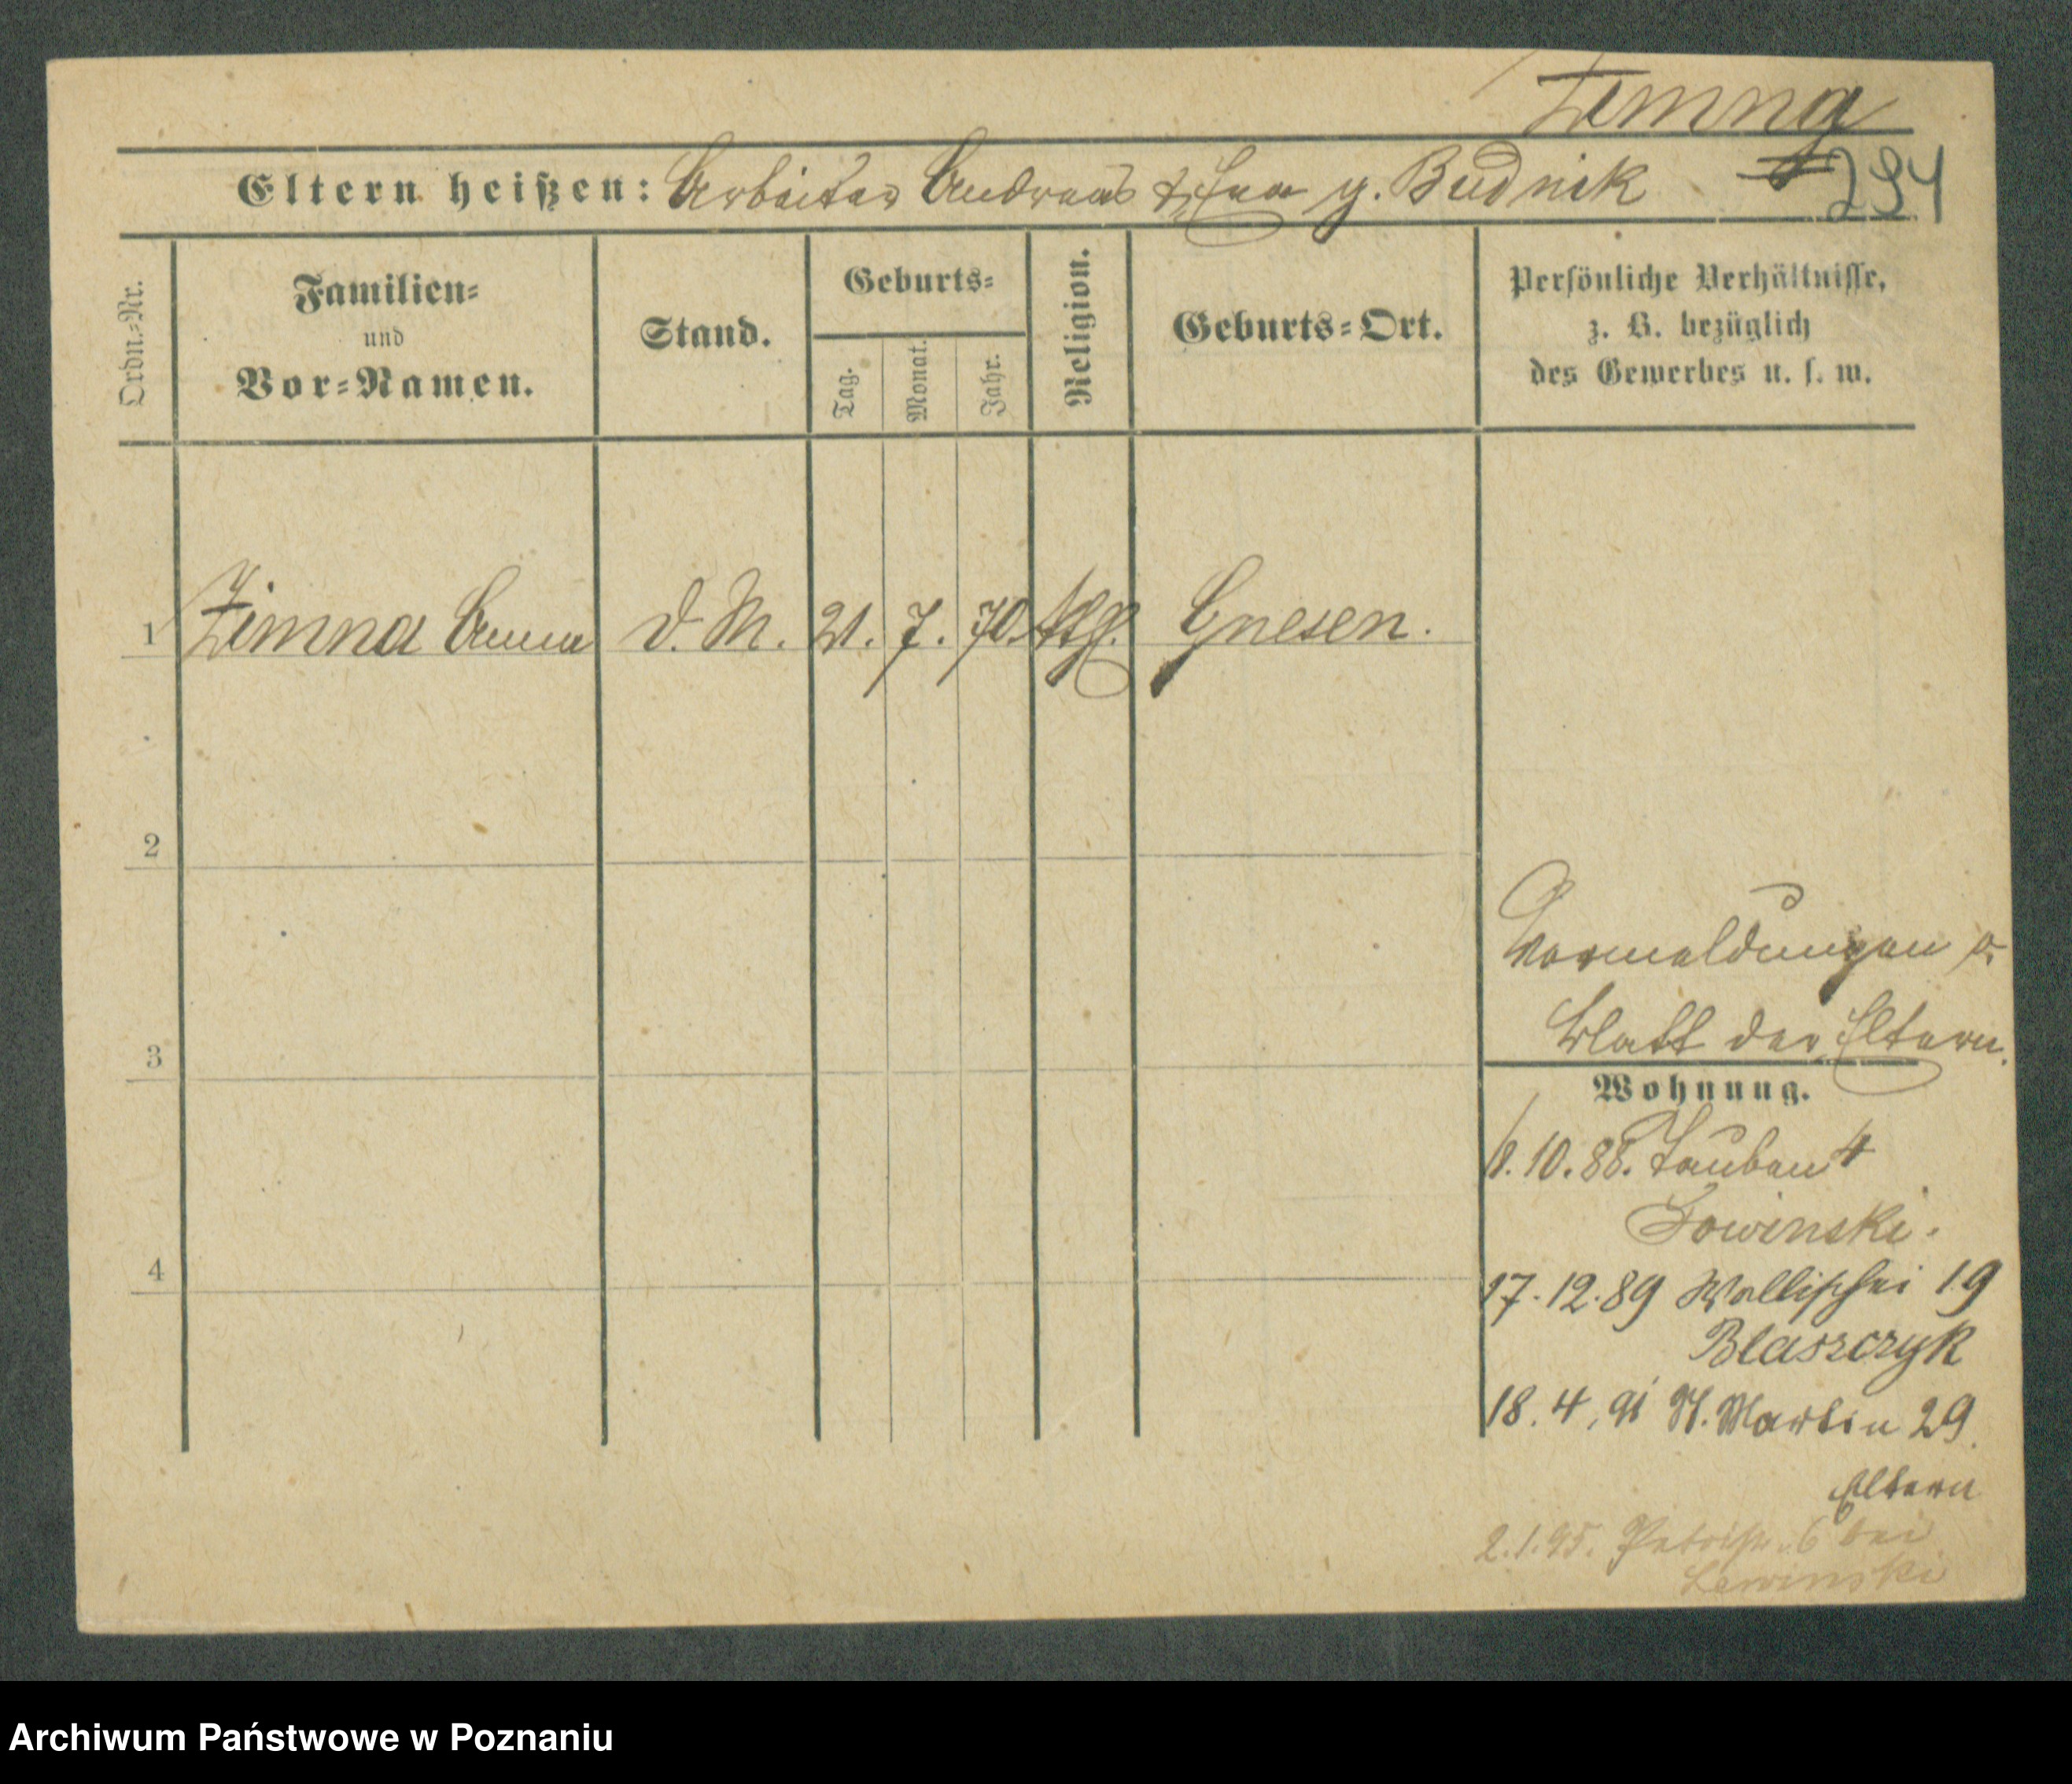 Zimna
Eltern heißen: Arbeiter Andreas & Eva g. Budnik 294
Ordn.-Nr.
Familien-
und
Vor-Namen.
Stand.
Geburts-
Tag.
Monat.
Jahr.
Religion.
Geburts-Ort.
Persönliche Verhältnisse,
z. B. bezüglich
des Gewerbes u. s. w.
1 Zimna Anna d. M. 21. 7. 70. Gnesen.
2
3
4
Vormeldungen s.
Blatt der Eltern.
Wohnung.
1.10.88. Tauben 4
17.12.89 Wallischei 19
Blaszczyk
18.4.91 St. Martin 29.
Eltern
2.1.95. 6 bei
Lewinski
Archiwum Państwowe w Poznaniu